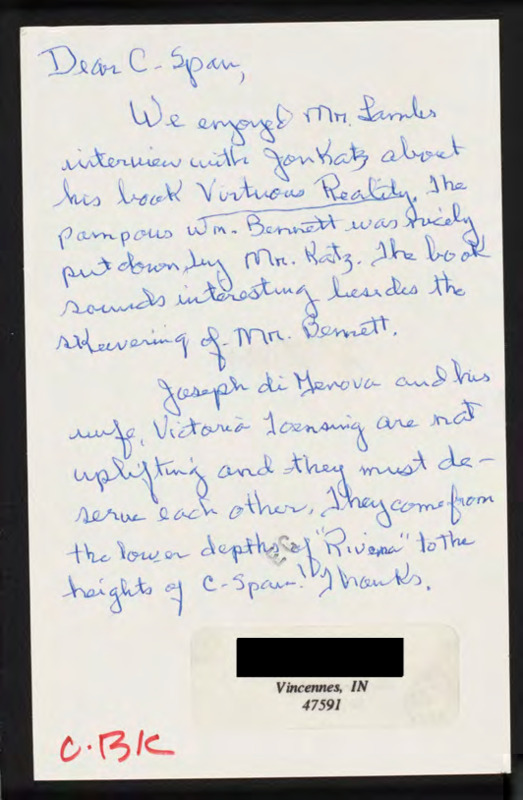 Dear C-Span,
We enjoyed Mr. Lambs
interview with Jon Katz about
his book Virtuous Reality. The
pompous Wm. Bennett was nicely
put down, by Mr. Katz. The book
sounds interesting besides the
skewering of Mr. Bennett.
Joseph di Genova and his
wife, Victoria Toensing are not
uplifting and they must de-
serve each other. They come from
the lower depths of "Rivera" to the
heights of C-Span! Thanks.
Vincennes, IN
47591
C.BK